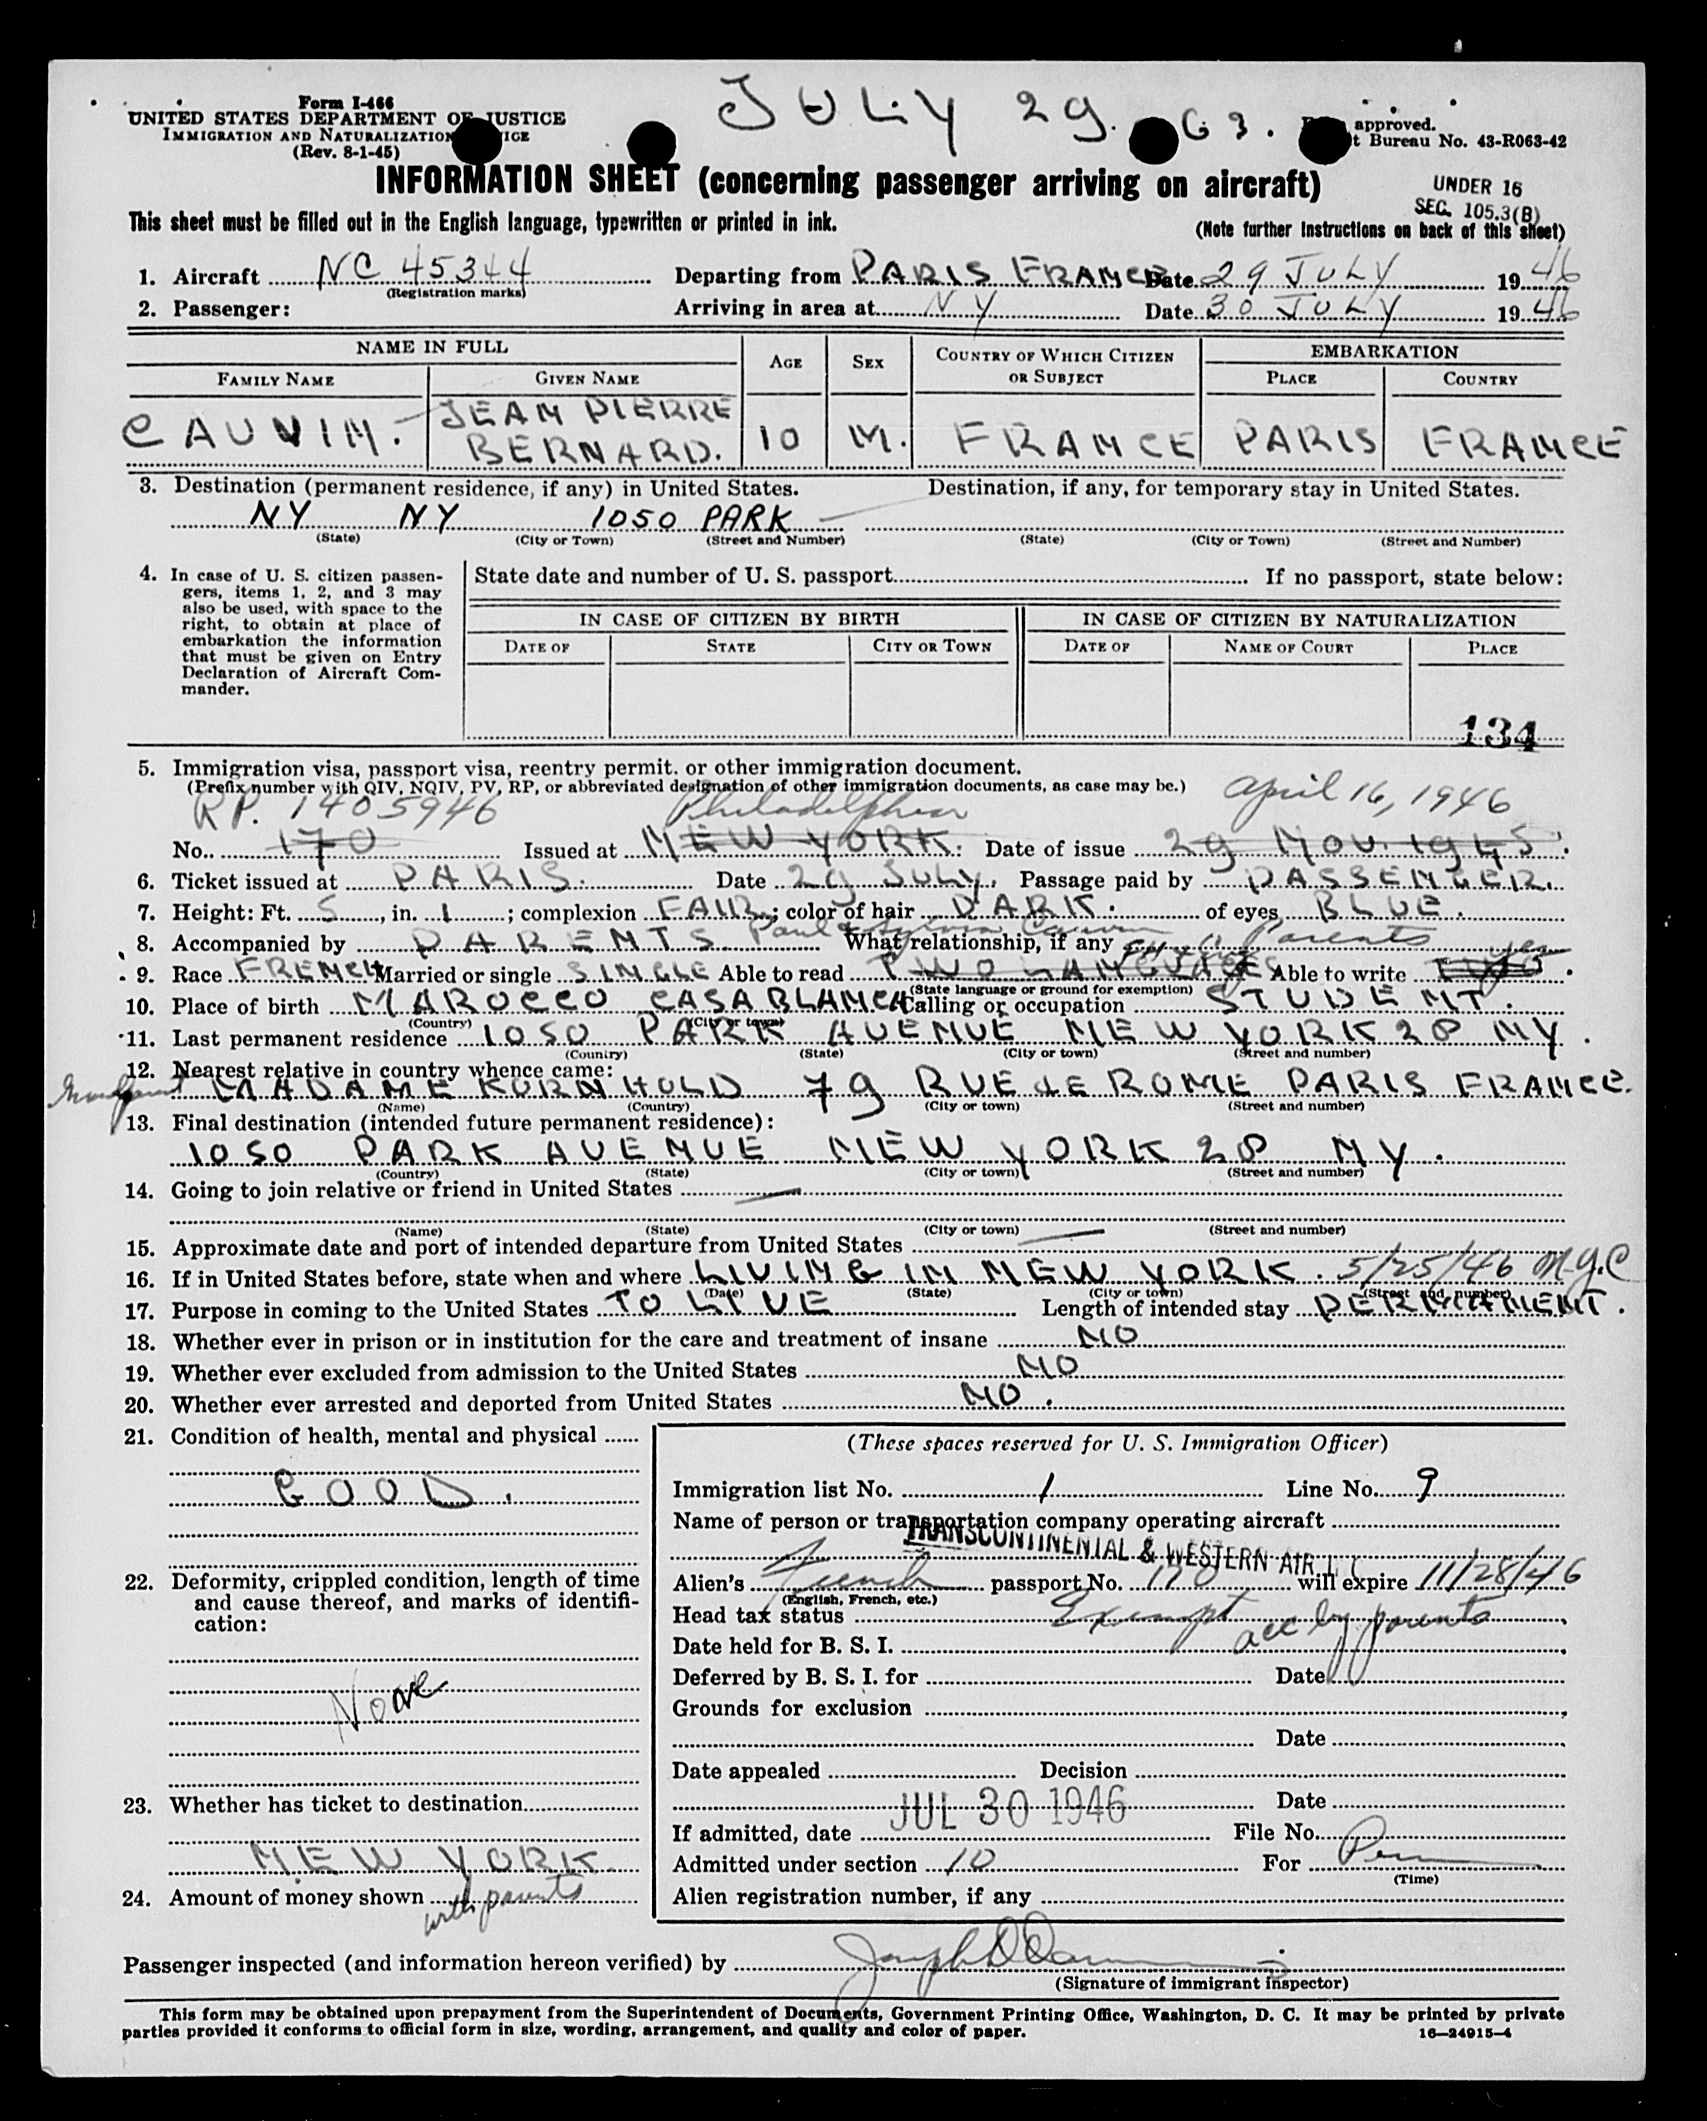 JULY 29. G3.
Form I-466
UNITED STATES DEPARTMENT OF JUSTICE
IMMIGRATION AND NATURALIZATION ICE
(Rev. 8-1-45)
approved.
t Bureau No. 43-R063-42
INFORMATION SHEET (concerning passenger arriving on aircraft)
UNDER 16
SEC. 105.3(B)
This sheet must be filled out in the English language, typewritten or printed in ink.
(Note further instructions on back of this sheet)
1. Aircraft NC 45344 Departing from PARIS FRANCE Date 29 JULY 1946
(Registration marks)
2. Passenger: Arriving in area at NY Date 30 JULY 1946
NAME IN FULL AGE SEX COUNTRY OF WHICH CITIZEN OR SUBJECT EMBARKATION
FAMILY NAME GIVEN NAME PLACE COUNTRY
CAUVIN. JEAN PIERRE BERNARD. 10 M. FRANCE PARIS FRANCE
3. Destination (permanent residence, if any) in United States. Destination, if any, for temporary stay in United States.
NY NY 1050 PARK
(State) (City or Town) (Street and Number) (State) (City or Town) (Street and Number)
4. In case of U. S. citizen passen-
gers, items 1, 2, and 3 may
also be used, with space to the
right, to obtain at place of
embarkation the information
that must be given on Entry
Declaration of Aircraft Com-
mander.
State date and number of U. S. passport If no passport, state below:
IN CASE OF CITIZEN BY BIRTH IN CASE OF CITIZEN BY NATURALIZATION
DATE OF STATE CITY OR TOWN DATE OF NAME OF COURT PLACE
134
5. Immigration visa, passport visa, reentry permit. or other immigration document.
(Prefix number with QIV, NQIV, PV, RP, or abbreviated designation of other immigration documents, as case may be.)
RP. 1405946 Philadelphia April 16, 1946
No. 170 Issued at NEW YORK. Date of issue 29 NOV. 1945.
6. Ticket issued at PARIS. Date 29 JULY. Passage paid by PASSENGER.
7. Height: Ft. 5, in. 1; complexion FAIR; color of hair DARK. of eyes BLUE.
8. Accompanied by PARENTS Paul & Sylvia Cauvin What relationship, if any Parents
9. Race FRENCH Married or single SINGLE Able to read TWO LANGUAGES Able to write yes
(State language or ground for exemption)
10. Place of birth MAROCCO CASABLANCA Calling or occupation STUDENT.
(Country) (City or town)
11. Last permanent residence 1050 PARK AVENUE NEW YORK 28 NY.
(Country) (State) (City or town) (Street and number)
12. Nearest relative in country whence came:
MADAME KORNHOLD 79 RUE de ROME PARIS FRANCE.
(Name) (Country) (City or town) (Street and number)
13. Final destination (intended future permanent residence):
1050 PARK AVENUE NEW YORK 28 NY.
(Country) (State) (City or town) (Street and number)
14. Going to join relative or friend in United States —
(Name) (State) (City or town) (Street and number)
15. Approximate date and port of intended departure from United States —
16. If in United States before, state when and where LIVING IN NEW YORK. 5/25/46 N.Y.C
(Date) (State) (City or town) (Street and number)
17. Purpose in coming to the United States TO LIVE Length of intended stay PERMANENT.
18. Whether ever in prison or in institution for the care and treatment of insane NO
19. Whether ever excluded from admission to the United States NO
20. Whether ever arrested and deported from United States NO.
21. Condition of health, mental and physical
GOOD.
22. Deformity, crippled condition, length of time
and cause thereof, and marks of identifi-
cation:
None
23. Whether has ticket to destination
NEW YORK
24. Amount of money shown with parents
(These spaces reserved for U. S. Immigration Officer)
Immigration list No. 1 Line No. 9
Name of person or transportation company operating aircraft
TRANSCONTINENTAL & WESTERN AIR
Alien's French passport No. 170 will expire 11/28/46
(English, French, etc.)
Head tax status Exempt acc by parents
Date held for B. S. I.
Deferred by B. S. I. for Date
Grounds for exclusion
Date
Date appealed Decision
Date
JUL 30 1946
If admitted, date File No.
Admitted under section 10 For Perm
(Time)
Alien registration number, if any
Passenger inspected (and information hereon verified) by
(Signature of immigrant inspector)
This form may be obtained upon prepayment from the Superintendent of Documents, Government Printing Office, Washington, D. C. It may be printed by private
parties provided it conforms to official form in size, wording, arrangement, and quality and color of paper.
16—24915-4